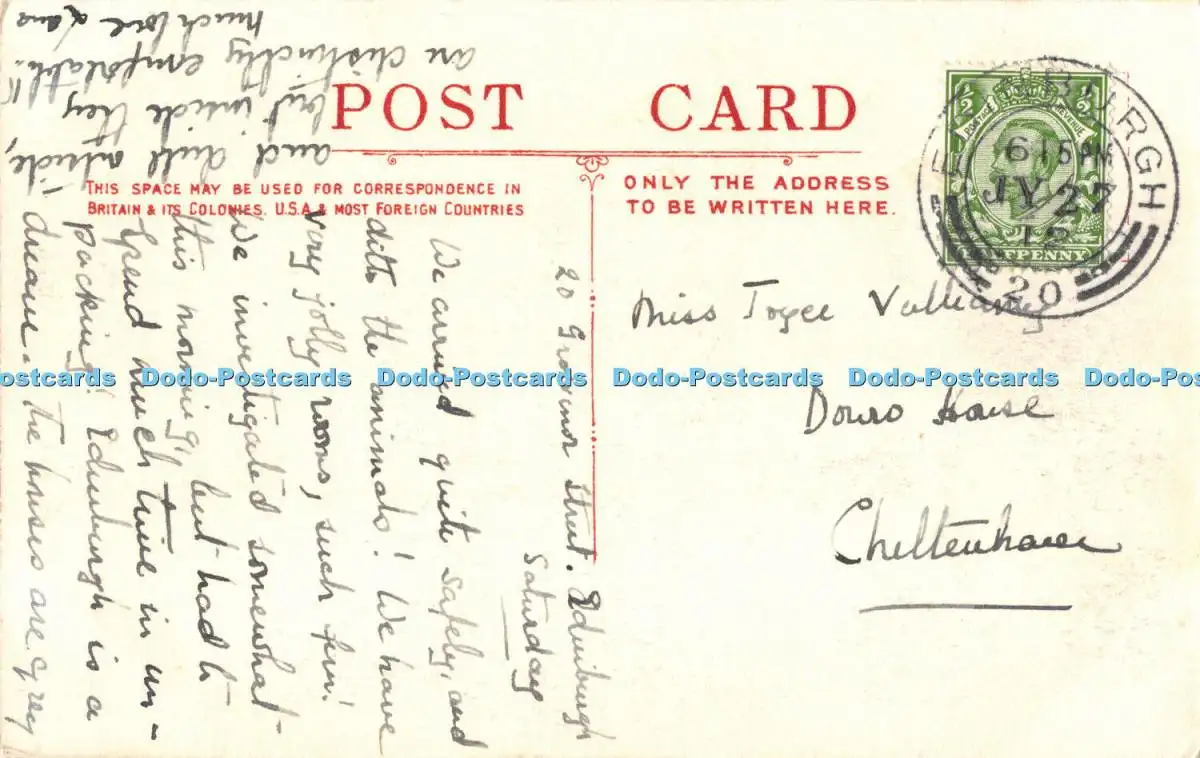 POST CARD
THIS SPACE MAY BE USED FOR CORRESPONDENCE IN
BRITAIN & ITS COLONIES. U.S.A & MOST FOREIGN COUNTRIES
ONLY THE ADDRESS
TO BE WRITTEN HERE.
EDINBURGH
6 15 PM
JY 27
12
20
1/2 1/2
POSTAGE REVENUE
HALFPENNY
Miss Joyce
Douro House
Cheltenham
20 Grosvenor Street. Edinburgh
Saturday
We arrived quite safely, and
ditto the animals! We have
very jolly rooms, such fun!
We investigated somewhat
this morning, but had to
spend much time in un-
packing! Edinburgh is a
dream. The houses are grey
and dull outside,
but inside they
are distinctly comfortable!
much love
Dodo-Postcards Dodo-Postcards Dodo-Postcards Dodo-Postcards Dodo-Postcards